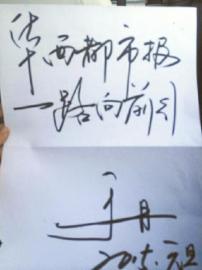 华西都市报
一路向前行
于丹
2015.元旦